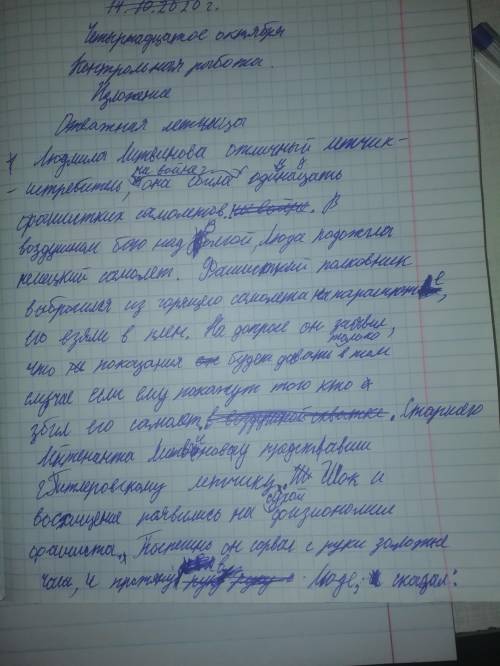 14.10.2020 г.
Четырнадцатое октября
Контрольная работа.
Изложение
Отважная летчица
Людмила Литвинова отличный летчик-
-истребитель, на войне она сбила одинадцать
фашистких самолетов. на войне. В
воздушном бою над Волгой, Люда подожгла
немецкий самолет. Фашисткий полковник
выбросился из горящего самолета на парашюте,
его взяли в плен. На допросе он заявил,
что показания он будет давать только в том
случае если ему покажут того кто
збил его самолет в воздушной схватке. Старшего
лейтенанта Литвинову представили
гитлеровскому летчику. Шок и
восхищение появились на сухой физиономии
фашиста. Поспешно он сорвал с руки золотые
часы, и протянул руку Люде, и сказал: